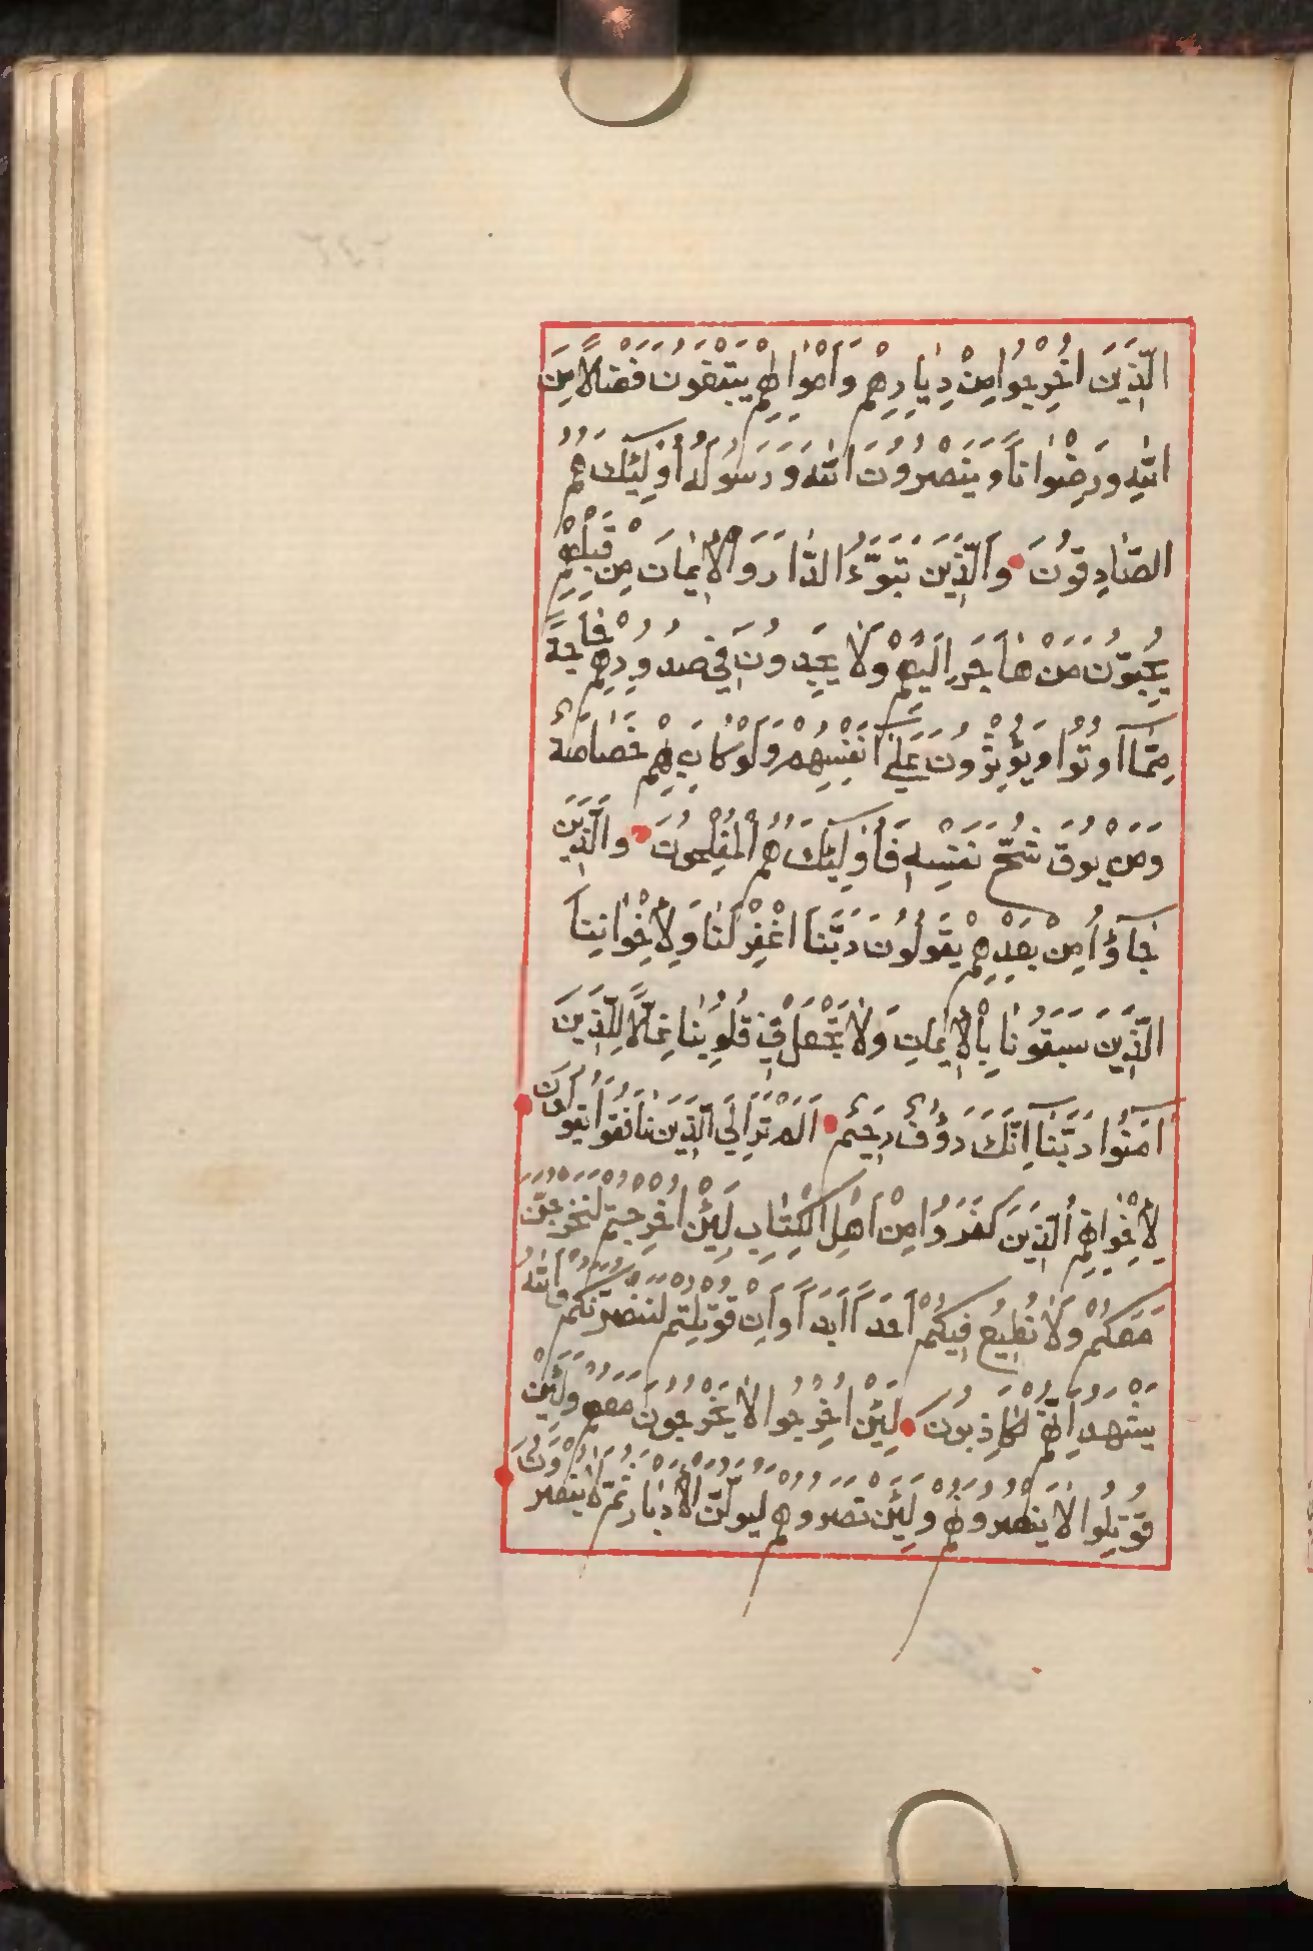 الَّذِينَ اُخْرِجُوا مِنْ دِيَارِهِمْ وَاَمْوَالِهِمْ يَبْتَغُونَ فَضْلاً مِنَ
اللّٰهِ وَرِضْوَاناً وَيَنْصُرُونَ اللّٰهَ وَرَسُولَهُ اُولٰٓئِكَ هُمُ
الصَّادِقُونَ وَالَّذِينَ تَبَوَّءُ الدَّارَ وَالْاِيمَانَ مِنْ قَبْلِهِمْ
يُحِبُّونَ مَنْ هَاجَرَ اِلَيْهِمْ وَلَا يَجِدُونَ فِي صُدُورِهِمْ حَاجَةً
مِمَّٓا اُوتُوا وَيُؤْثِرُونَ عَلَٓى اَنْفُسِهِمْ وَلَوْ كَانَ بِهِمْ خَصَاصَةٌ
وَمَنْ يُوقَ شُحَّ نَفْسِهِ فَاُولٰٓئِكَ هُمُ الْمُفْلِحُونَ وَالَّذِينَ
جَٓاؤُا مِنْ بَعْدِهِمْ يَقُولُونَ رَبَّنَا اغْفِرْ لَنَا وَلِاِخْوَانِنَا
الَّذِينَ سَبَقُونَا بِالْاِيمَانِ وَلَا تَجْعَلْ فِي قُلُوبِنَا غِلّاً لِلَّذِينَ
اٰمَنُوا رَبَّنَٓا اِنَّكَ رَؤُفٌ رَحِيمٌ اَلَمْ تَرَ اِلَى الَّذِينَ نَافَقُوا يَقُولُونَ
لِاِخْوَانِهِمُ الَّذِينَ كَفَرُوا مِنْ اَهْلِ الْكِتَابِ لَئِنْ اُخْرِجْتُمْ لَنَخْرُجَنَّ
مَعَكُمْ وَلَا نُطِيعُ فِيكُمْ اَحَداً اَبَداً وَاِنْ قُوتِلْتُمْ لَنَنْصُرَنَّكُمْ وَاللّٰهُ
يَشْهَدُ اِنَّهُمْ لَكَاذِبُونَ لَئِنْ اُخْرِجُوا لَا يَخْرُجُونَ مَعَهُمْ وَلَئِنْ
قُوتِلُوا لَا يَنْصُرُونَهُمْ وَلَئِنْ نَصَرُوهُمْ لَيُوَلُّنَّ الْاَدْبَارَ ثُمَّ لَا يُنْصَرُونَ